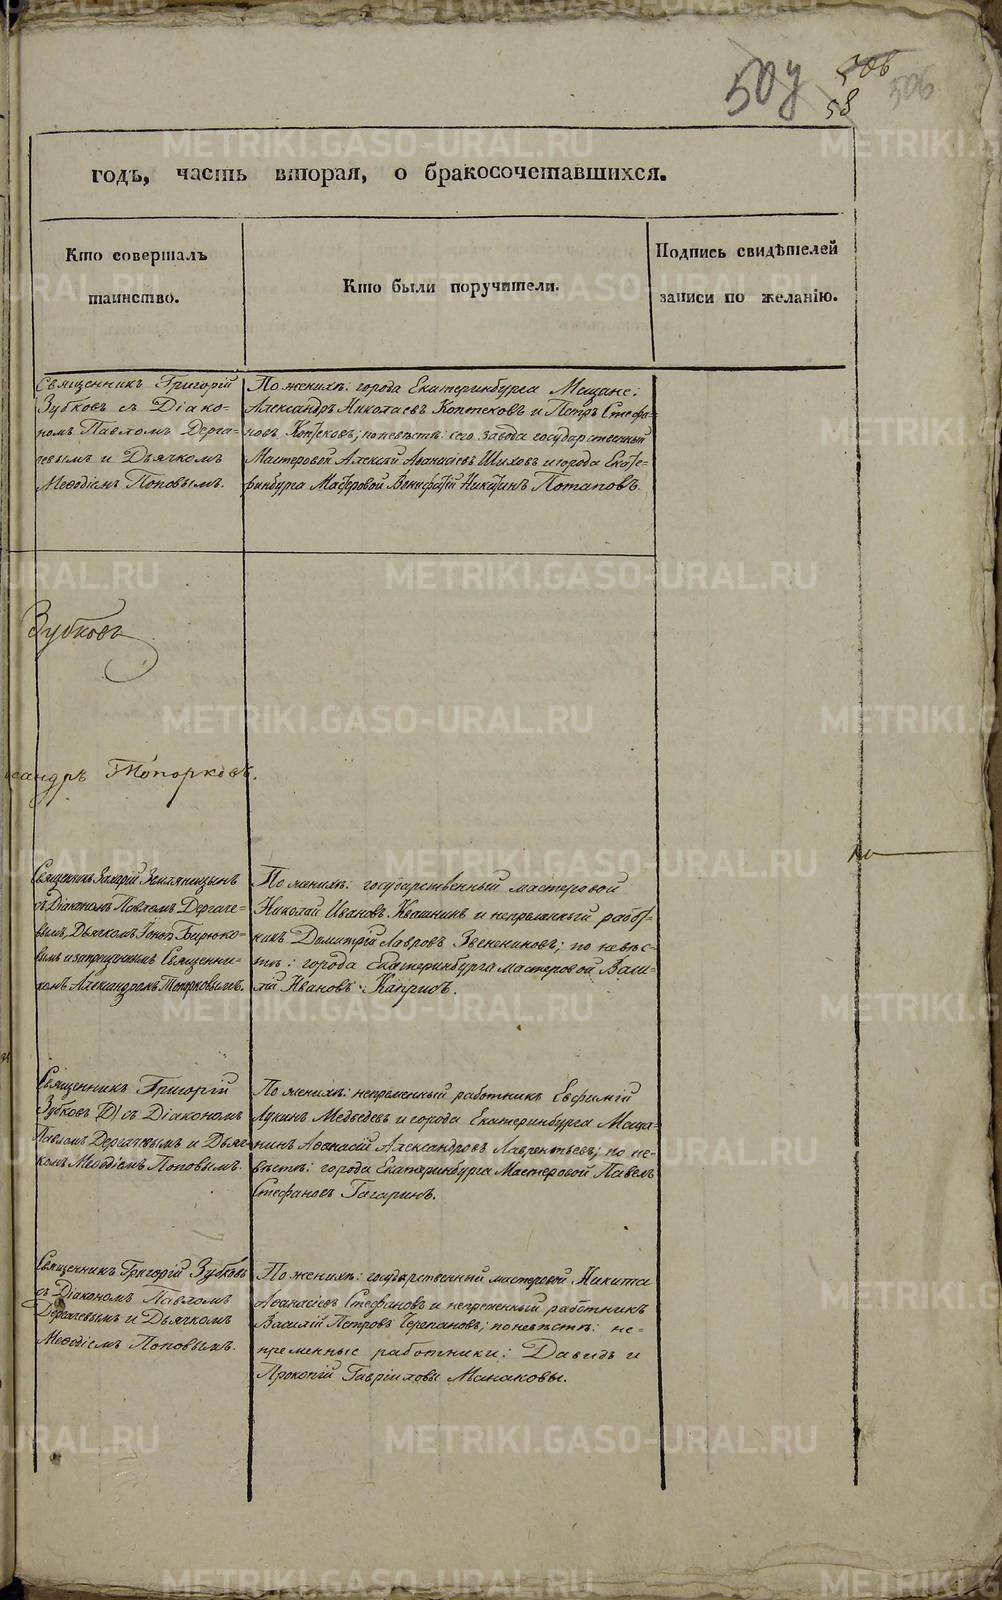 507
306
506
58
годъ, часть вторая, о бракосочетавшихся.
Кто совершалъ
таинство.
Кто были поручители.
Подпись свидѣтелей
записи по желанію.
Священникъ Григорій
Зубковъ съ Діако-
номъ Павломъ Дерга-
чевымъ и Дьячкомъ
Меѳодіемъ Поповымъ.
По женихѣ: города Екатеринбурга Мещане:
Александръ Николаевъ Коптековъ и Петръ Стефа-
новъ Коптековъ; по невѣстѣ: сего завода государственный
Мастеровой Алексѣй Аѳанасіевъ Шиховъ и города Екате-
ринбурга Мастеровой Вонифатій Никитинъ Потаповъ.
Зубковъ
сандръ Топорковъ.
Священникъ Захарій Земляницынъ
съ Діакономъ Павломъ Дергаче-
вымъ, Дьячкомъ Іоною Бирюко-
вымъ и заштатнымъ Священни-
комъ Александромъ Топорковымъ.
По женихѣ: государственный мастеровой
Николай Ивановъ Квашнинъ и непремѣнный работ-
никъ Димитрій Лавровъ Звенениковъ; по невѣс-
тѣ: города Екатеринбурга мастеровой Васи-
лій Ивановъ
Священникъ Григорій
Зубковъ съ Діакономъ
Павломъ Дергачевымъ и Дьяч-
комъ Меѳодіемъ Поповымъ.
По женихѣ: непременный работникъ Евфимій
Лукинъ Медведевъ и города Екатеринбурга Меща-
нинъ Аѳанасій Александровъ Лаврентьевъ; по не-
вѣстѣ: города Екатеринбурга Мастеровой Павелъ
Стефановъ Гагаринъ.
Священникъ Григорій Зубковъ
съ Діакономъ Павломъ
Дергачевымъ и Дьячкомъ
Меѳодіемъ Поповымъ.
По женихѣ: государственный мастеровой Никита
Аѳанасіевъ Стефановъ и непременный работникъ
Василій Петровъ Черепановъ; по невѣстѣ: не-
пременные работники: Давидъ и
Прокопій Гавріиловы Манаковы.
METRIKI.GASO-URAL.RU